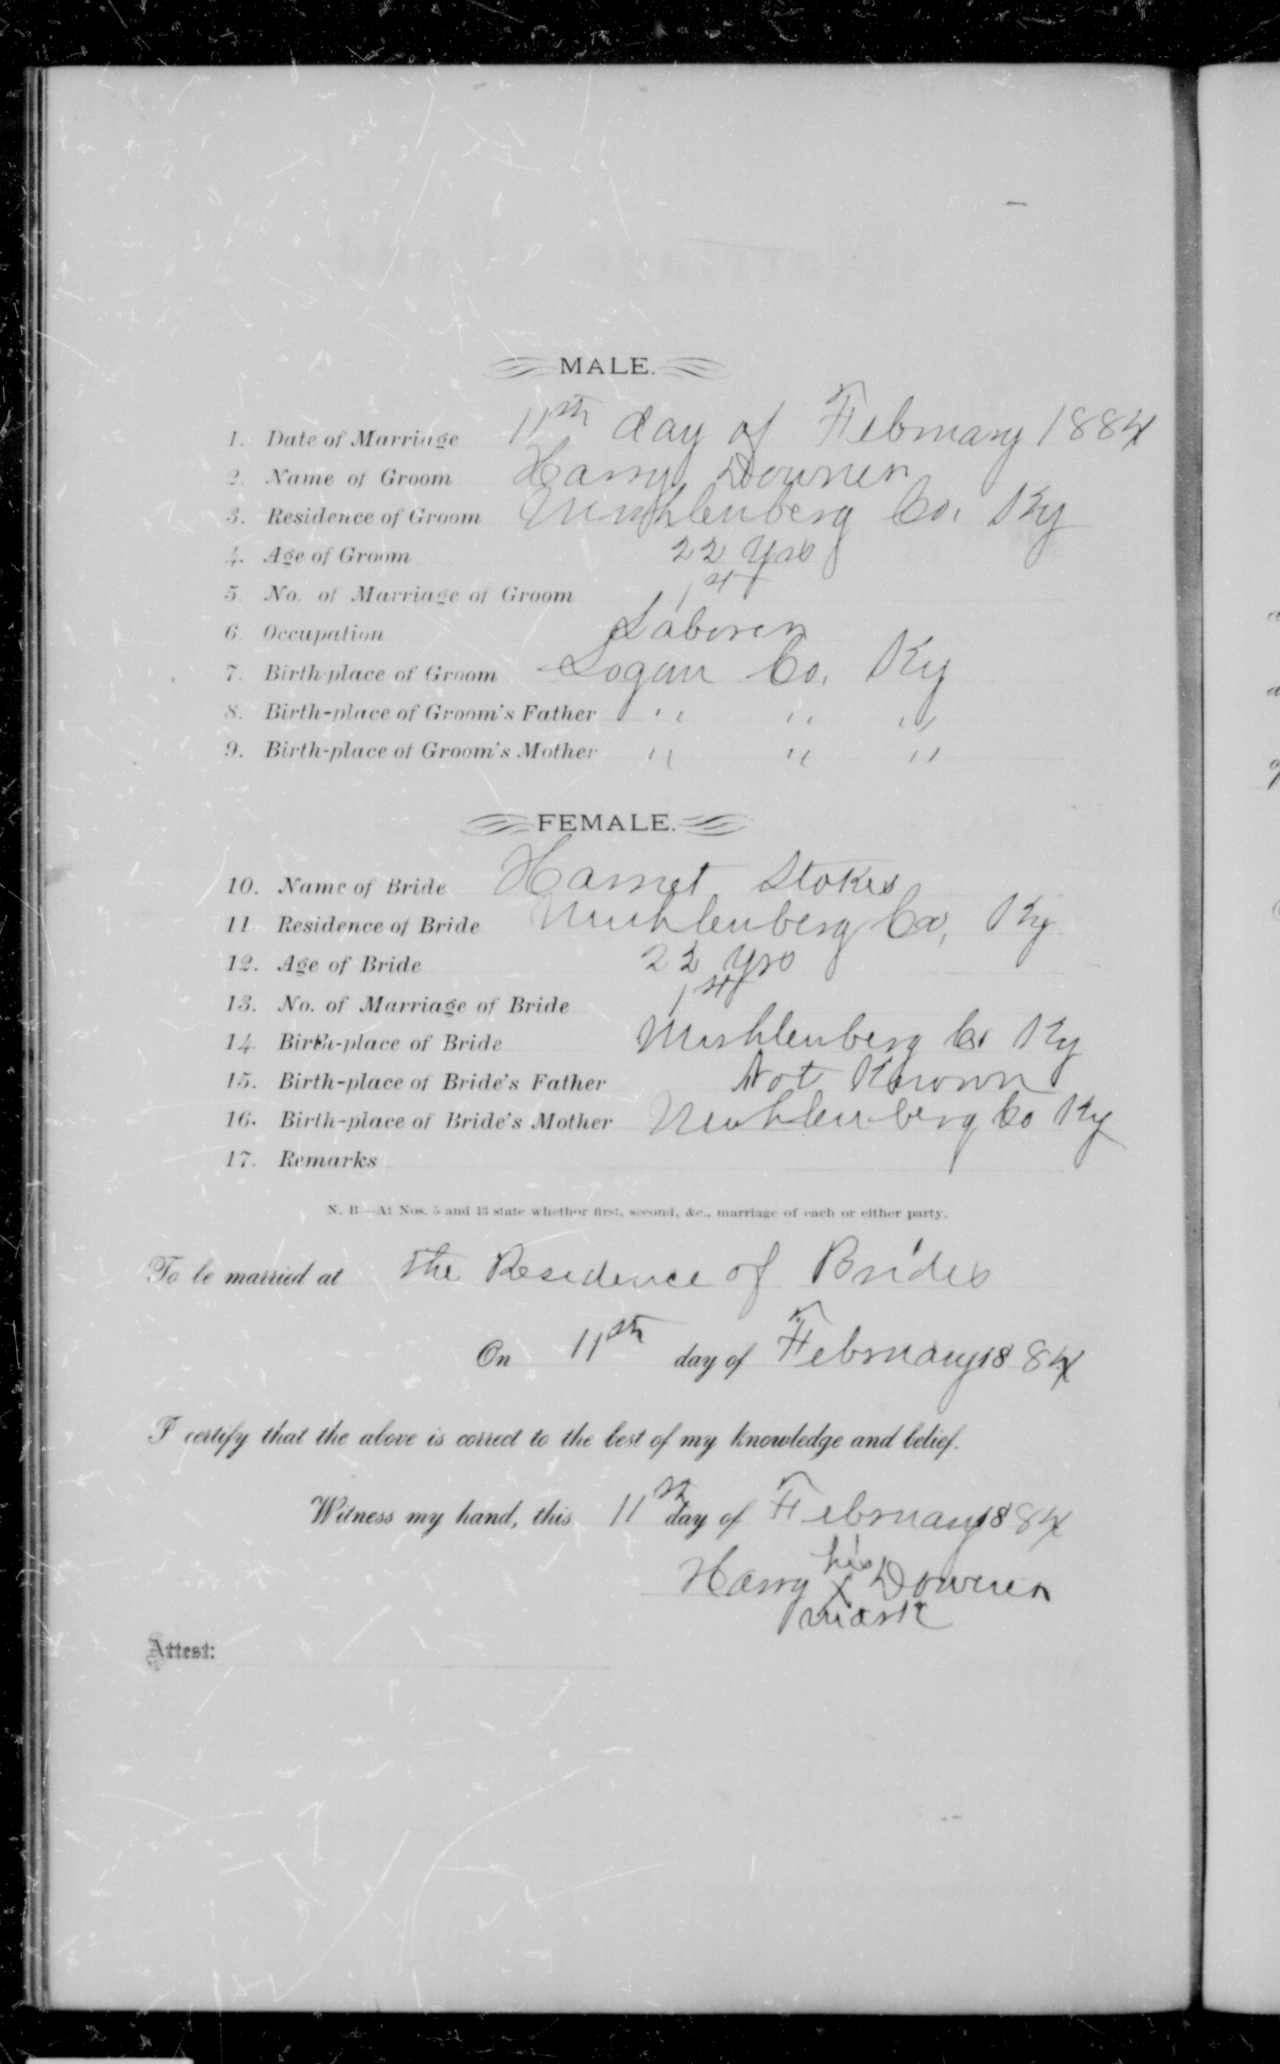 MALE.
1. Date of Marriage 11th day of February 1884
2. Name of Groom Harry Downer
3. Residence of Groom Muhlenberg Co. Ky
4. Age of Groom 22 yrs
5. No. of Marriage of Groom 1st
6. Occupation Laborer
7. Birth-place of Groom Logan Co. Ky
8. Birth-place of Groom's Father " " "
9. Birth-place of Groom's Mother " " "
FEMALE.
10. Name of Bride Harriet Stokes
11 Residence of Bride Muhlenberg Co, Ky
12. Age of Bride 22 yrs
13. No. of Marriage of Bride 1st
14. Birth-place of Bride Muhlenberg Co Ky
15. Birth-place of Bride's Father Not Known
16. Birth-place of Bride's Mother Muhlenberg Co Ky
17. Remarks
N. B—At Nos. 5 and 13 state whether first, second, &c., marriage of each or either party.
To be married at the Residence of Bride's
On 11th day of February 1884
I certify that the above is correct to the best of my knowledge and belief.
Witness my hand, this 11th day of February 1884
his
Harry X Downer
mark
Attest: